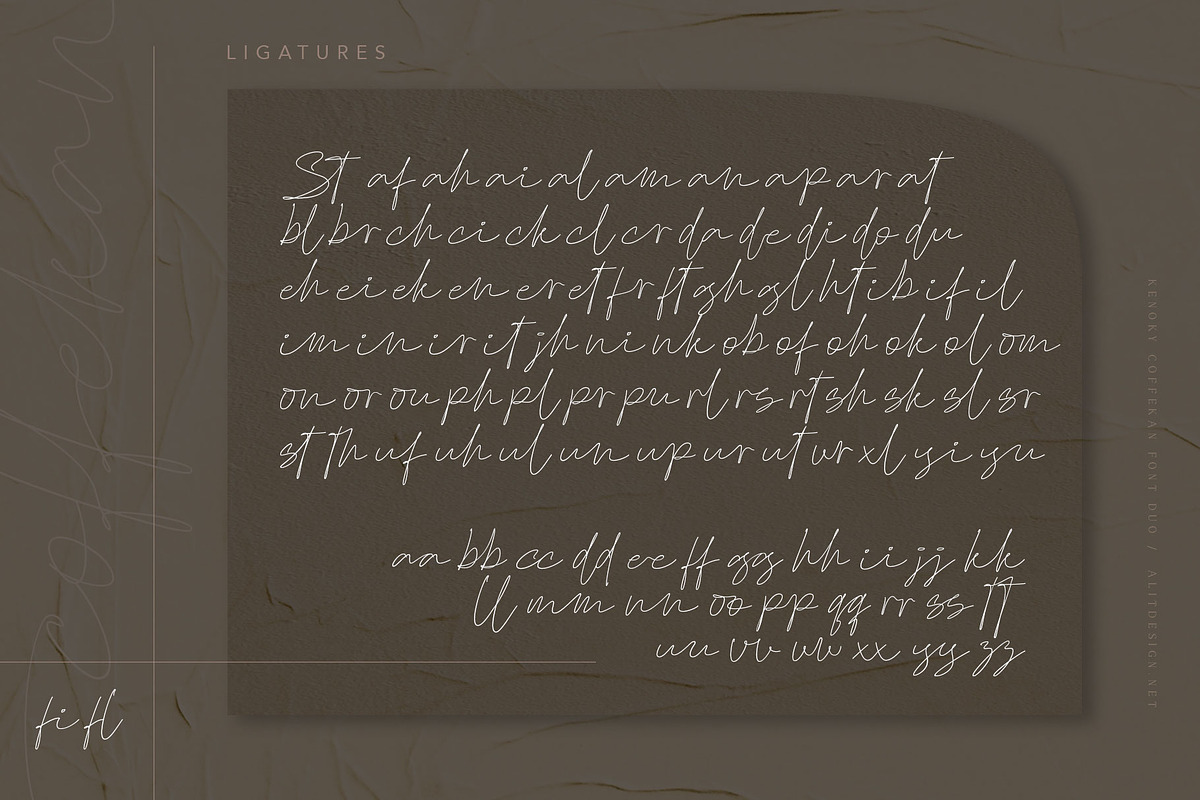 LIGATURES
St af ah ai al am an ap ar at
bl br ch ci ck cl cr da de di do du
eh ei ek en er et fr ft gh gl ht ib if il
im in ir it jh ni nk ob of oh ok ol om
on or ou ph pl pr pu rl rs rt sh sk sl sr
st Th uf uh ul un up ur ut wr xl yi yu
aa bb cc dd ee ff gg hh ii jj kk
ll mm nn oo pp qq rr ss tt
uu vv ww xx yy zz
fi fl
coffekan
KENOKY COFFEKAN FONT DUO / ALITDESIGN.NET